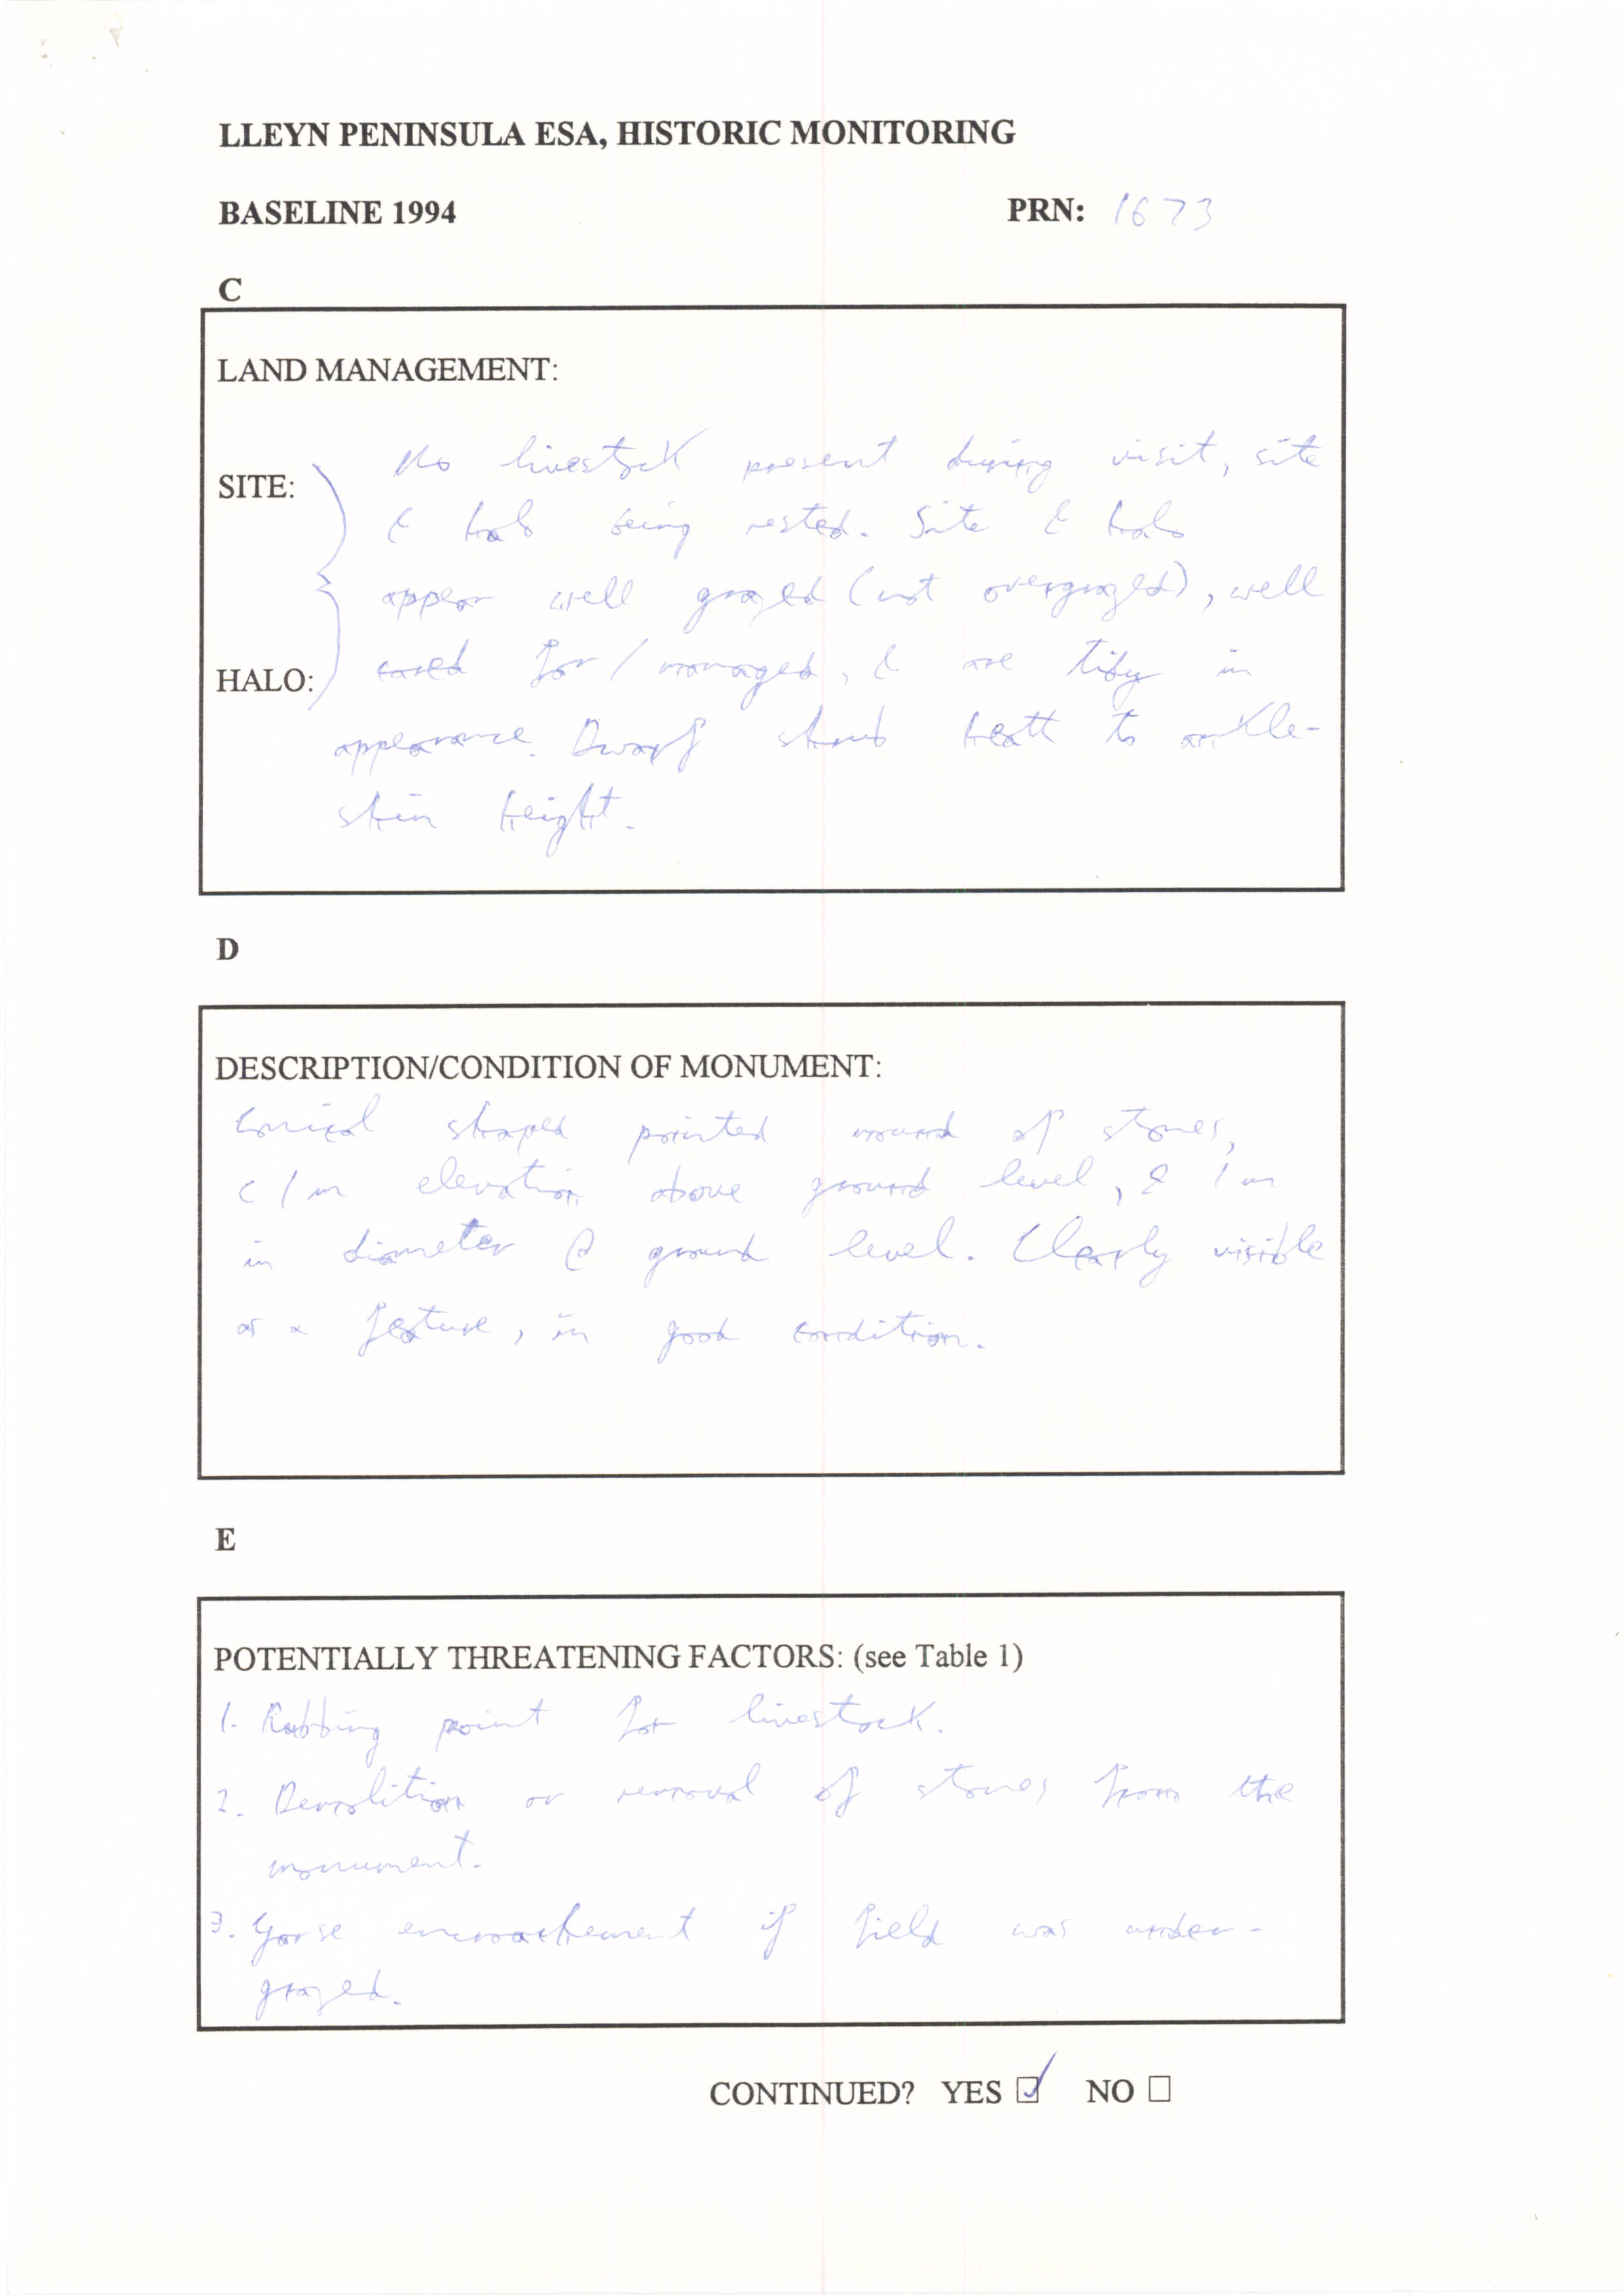 LLEYN PENINSULA ESA, HISTORIC MONITORING
BASELINE 1994 PRN: 1673
C
LAND MANAGEMENT:
SITE:
HALO:
No livestock present during visit, site
& halo being rested. Site & halo
appear well grazed (not overgrazed), well
cared for / managed, & are tidy in
appearance. Dwarf shrub heath to ankle-
shin height.
D
DESCRIPTION/CONDITION OF MONUMENT:
Conical shaped pointed mound of stones,
c 1m elevation above ground level, & 1m
in diameter @ ground level. Clearly visible
as a feature, in good condition.
E
POTENTIALLY THREATENING FACTORS: (see Table 1)
1. Rubbing point for livestock.
2. Demolition or removal of stones from the
monument.
3. Gorse encroachement if field was under-
grazed.
CONTINUED? YES ☑ NO ☐